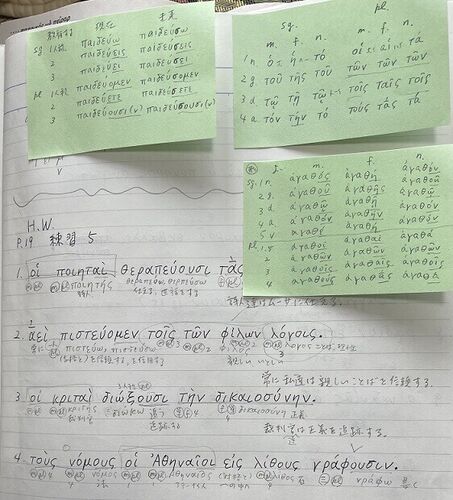 教育する 現在 未来
sg 1人称 παιδεύω παιδεύσω
2 παιδεύεις παιδεύσεις
3 παιδεύει παιδεύσει
pl 1人称 παιδεύομεν παιδεύσομεν
2 παιδεύετε παιδεύσετε
3 παιδεύουσι(ν) παιδεύσουσι(ν)
sg. pl.
m. f. n. m. f. n.
1 n ὁ ἡ τό οἱ αἱ τά
2 g τοῦ τῆς τοῦ τῶν τῶν τῶν
3 d τῷ τῇ τῷ τοῖς ταῖς τοῖς
4 a τόν τήν τό τούς τάς τά
m. f. n.
sg. 1 n. ἀγαθός ἀγαθή ἀγαθόν
2 g. ἀγαθοῦ ἀγαθῆς ἀγαθοῦ
3 d ἀγαθῷ ἀγαθῇ ἀγαθῷ
4 a ἀγαθόν ἀγαθήν ἀγαθόν
5 v ἀγαθή ἀγαθόν
pl. 1.5 ἀγαθοί ἀγαθαί ἀγαθά
2 ἀγαθῶν ἀγαθῶν ἀγαθῶν
3 ἀγαθοῖς ἀγαθαῖς ἀγαθοῖς
4 ἀγαθούς ἀγαθάς ἀγαθά
H.W.
P.19 練習 5
1. οἱ ποιηταὶ θεραπεύουσι τὰς
ποιητής θεραπεύω
詩人
詩人達はムーサに仕える。
2. ἀεὶ πιστεύομεν τοῖς τῶν φίλων λόγοις.
常に πιστεύω λόγος ことば
親しい
常に私達は親しいことばを信頼する。
3. οἱ κριταὶ διώξουσι τὴν δικαιοσύνην.
κριτής διώκω 追う δικαιοσύνη 正義
裁判官 追跡する
裁判官達は正義を追跡する。
4. τοὺς νόμους οἱ Ἀθηναῖοι εἰς λίθους γράφουσιν.
νόμος Ἀθηναῖος λίθος 石 γράφω 書く
法 アテーナイ人